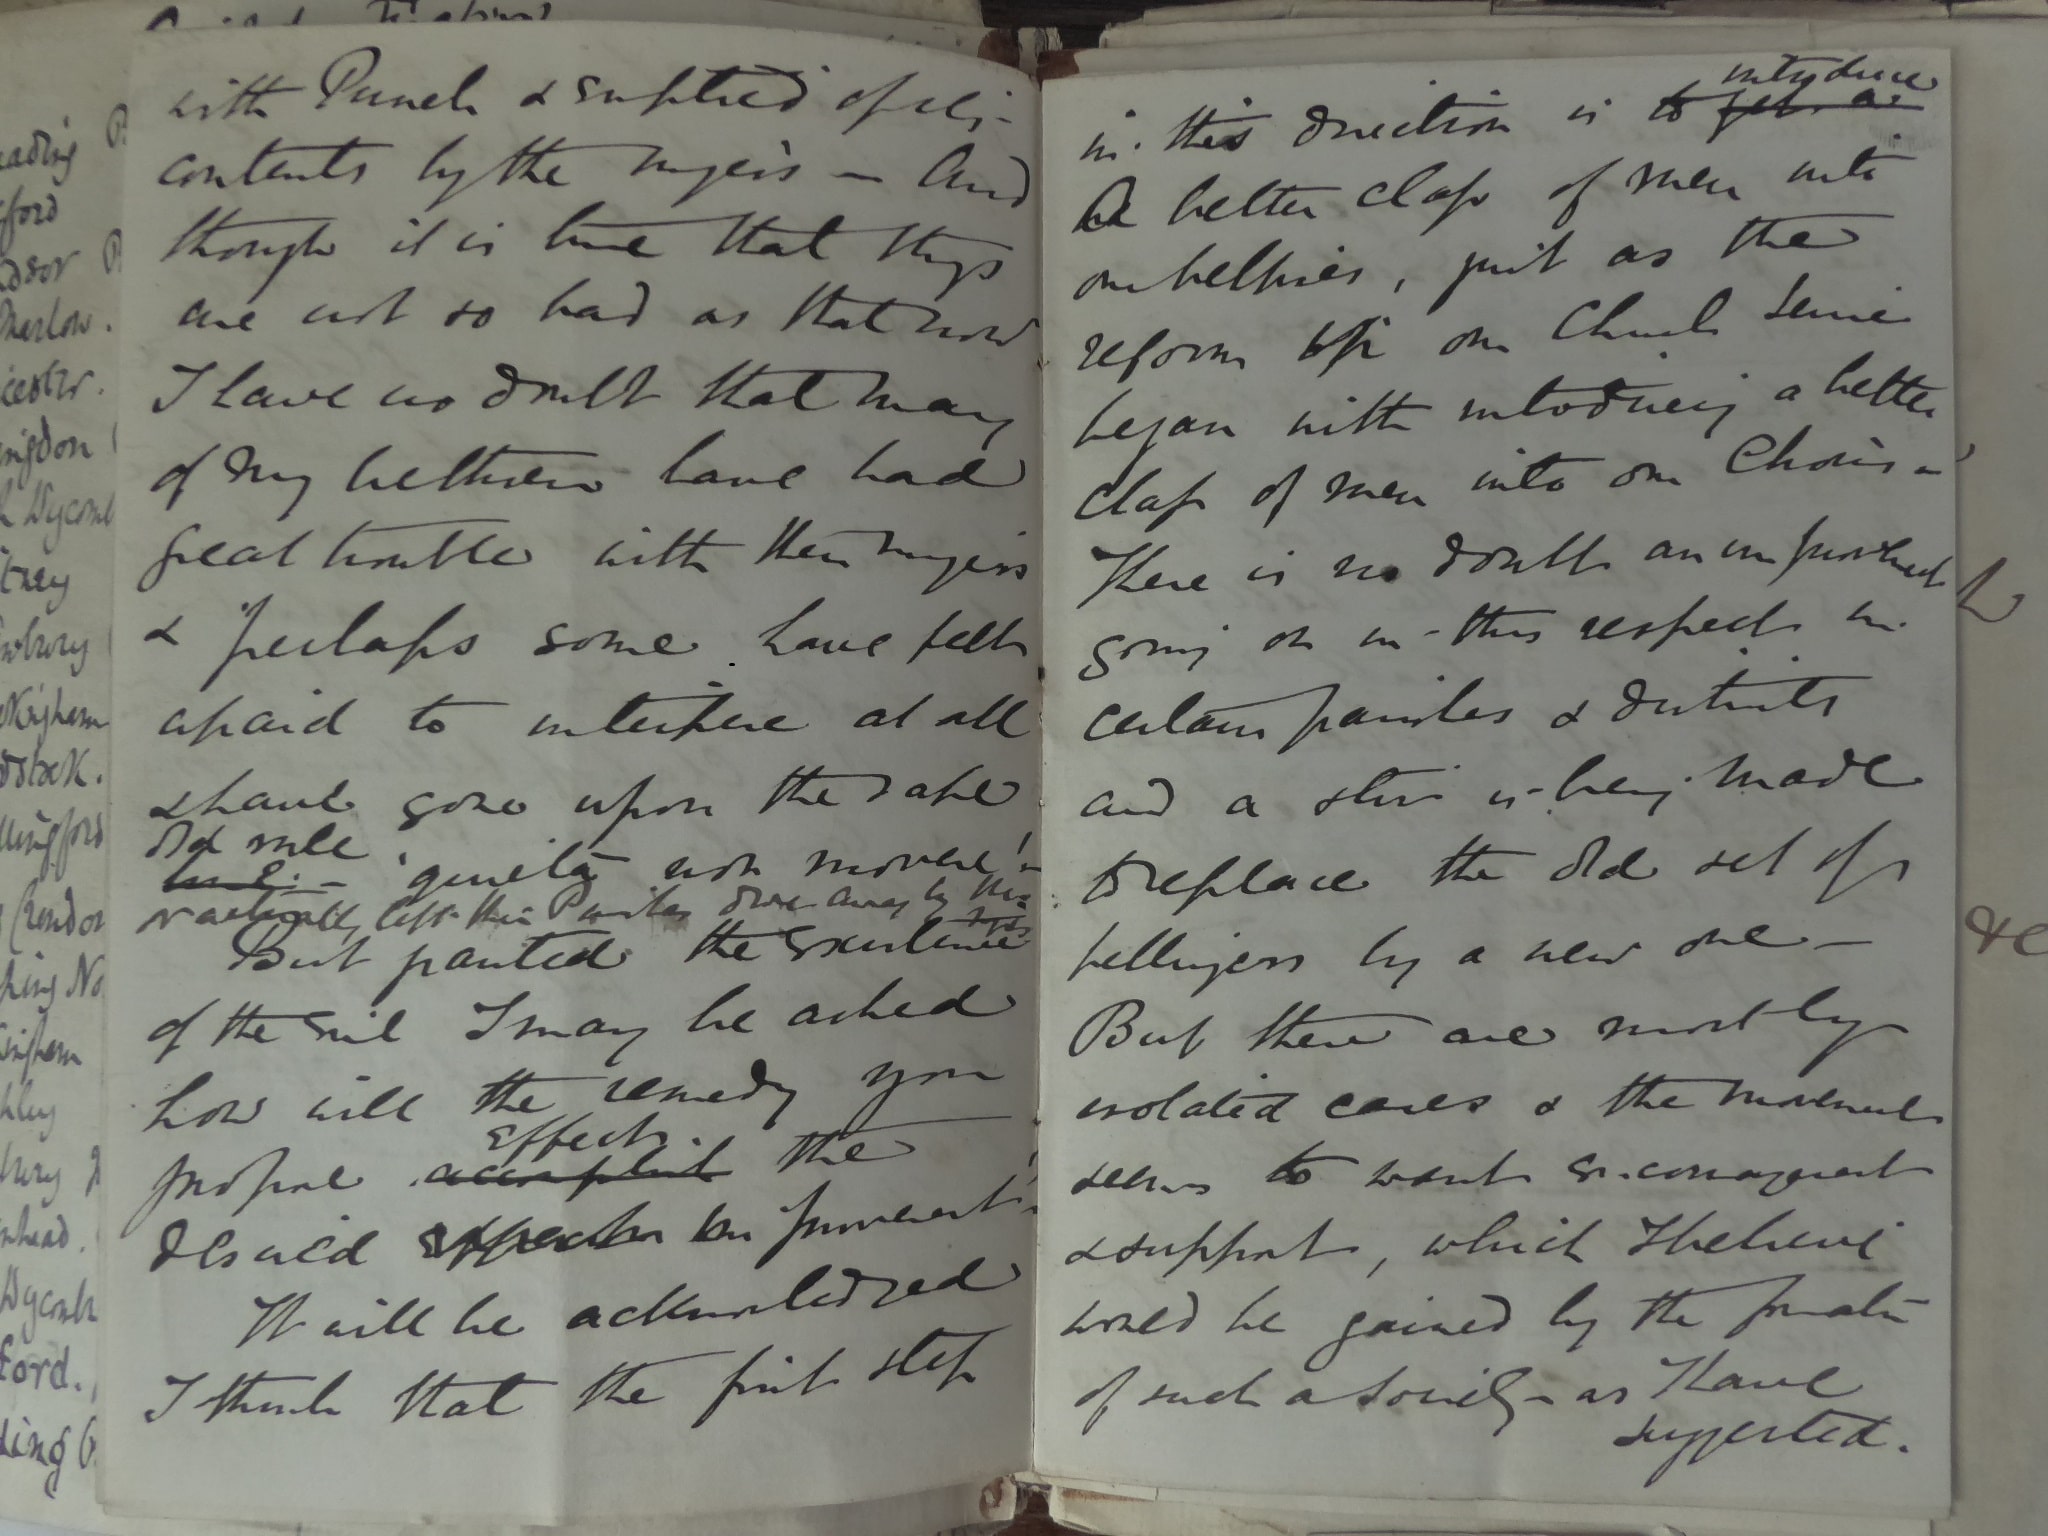 with Punch & emptied of its
contents by the ringers – And
though it is true that things
are not so bad as that now
I have no doubt that many
of my brethren have had
great trouble with their ringers
& perhaps some have felt
afraid to interfere at all
& have gone upon the safe
old rule
'quieta non movere' –
left their
But granted the existence
of the evil I may be asked
how will the remedy you
effect
propose accomplish the
desired improvement –
It will be acknowledged
I think that the first step
introduce
in this direction is to get a
a better class of men into
our belfries, just as the
reform in our Church Service
began with introducing a better
class of men into our Choirs –
There is no doubt an improvement
going on in this respect in
certain parishes & districts
and a stir is being made
to replace the old set of
bellringers by a new one –
But these are mostly
isolated cases & the movement
seems to want encouragement
& support, which I believe
would be gained by the formation
of such a Society – as I have
suggested.
eading
gford
dsor
Marlow.
icester.
ingdon
Wycomb
tney
wbury
kingham
dstock.
llingford
pling No
kingham
nhead.
Wycomb
ford.
ding
&c